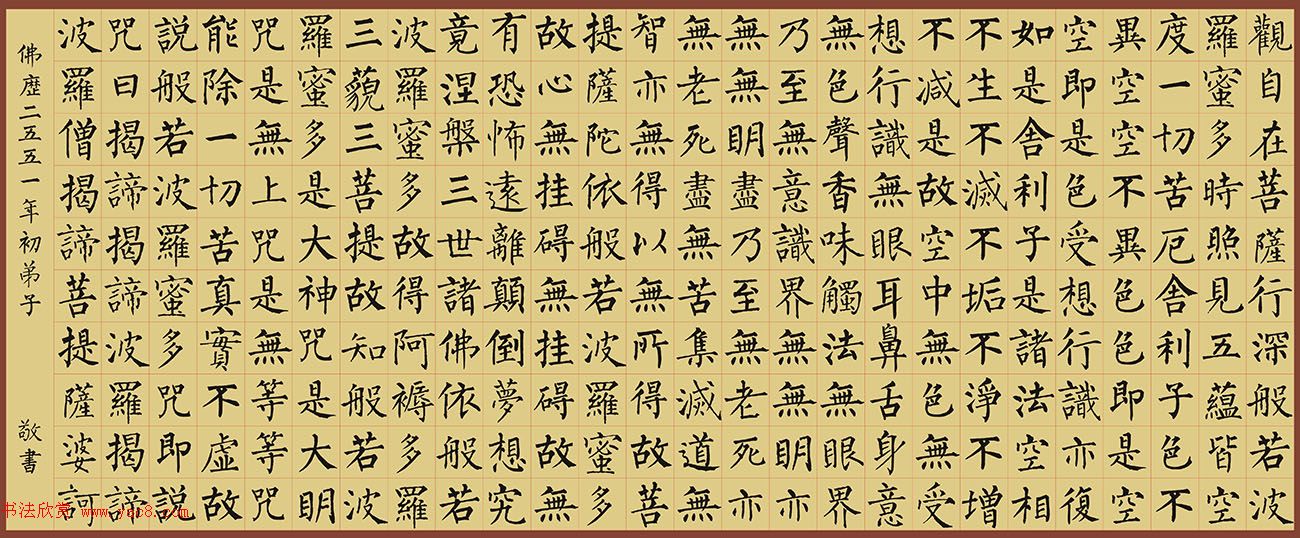 觀自在菩薩行深般若波
羅蜜多時照見五蘊皆空
度一切苦厄舍利子色不
異空空不異色色即是空
空即是色受想行識亦復
如是舍利子是諸法空相
不生不滅不垢不淨不增
不減是故空中無色無受
想行識無眼耳鼻舌身意
無色聲香味觸法無眼界
乃至無意識界無無明亦
無無明盡乃至無老死亦
無老死盡無苦集滅道無
智亦無得以無所得故菩
提薩陀依般若波羅蜜多
故心無挂碍無挂碍故無
有恐怖遠離顛倒夢想究
竟涅槃三世諸佛依般若
波羅蜜多故得阿褥多羅
三藐三菩提故知般若波
羅蜜多是大神咒是大明
咒是無上咒是無等等咒
能除一切苦真實不虛故
說般若波羅蜜多咒即說
咒曰揭諦揭諦波羅揭諦
波羅僧揭諦菩提薩婆訶
佛歷二五五一年初弟子 敬書
书法欣赏 www.yac8.com